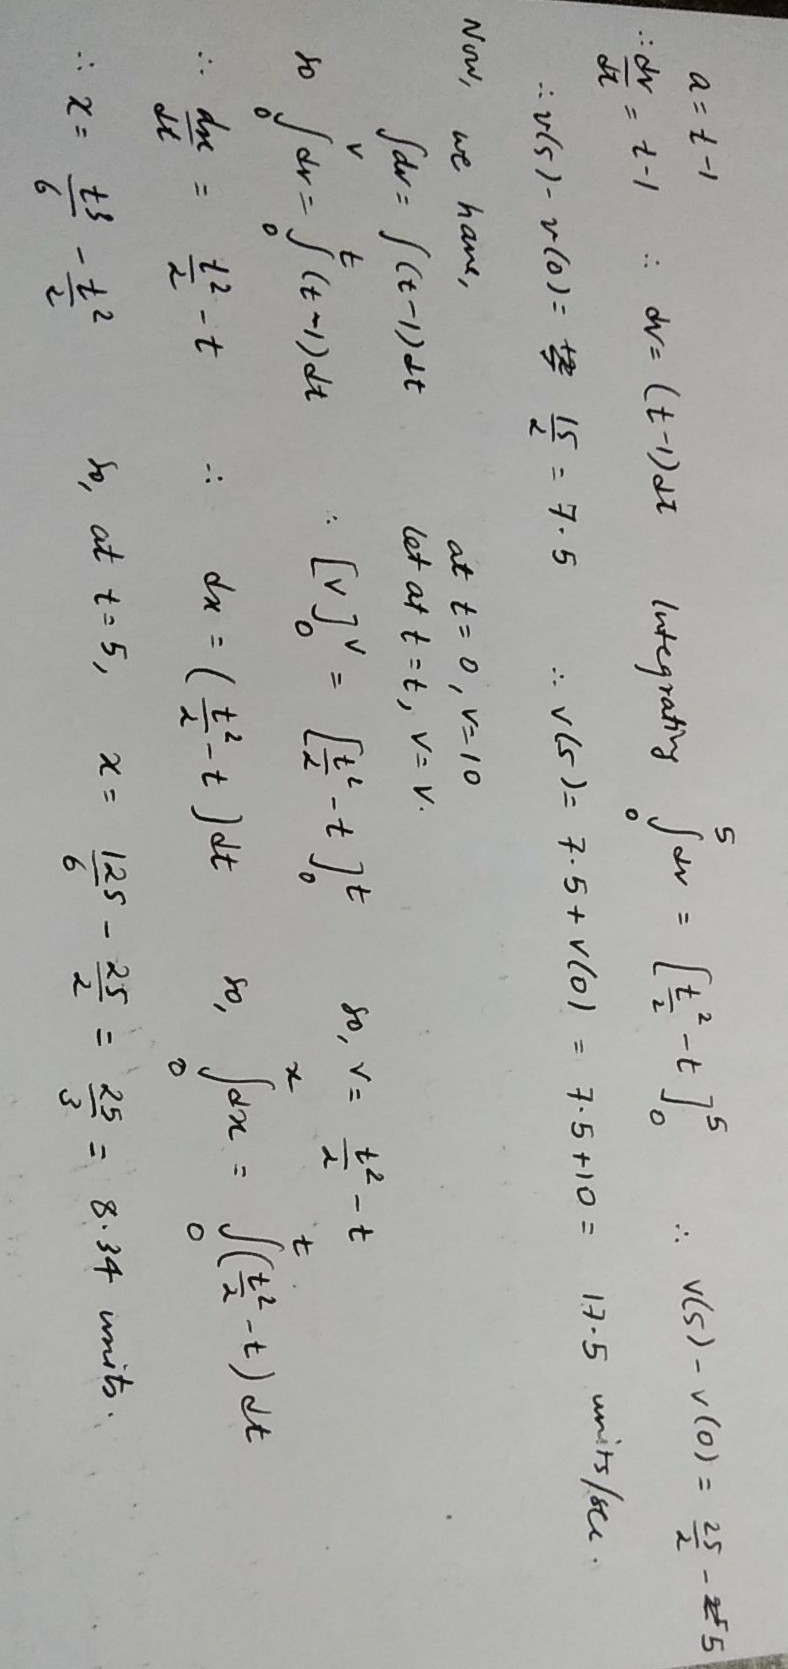 a = t-1
∴ dv/dt = t-1 ∴ dv = (t-1)dt Integrating ∫₀⁵ dv = [t²/2 - t]₀⁵ ∴ v(5) - v(0) = 25/2 - 5
∴ v(5) - v(0) = 15/2 = 7.5 ∴ v(5) = 7.5 + v(0) = 7.5+10 = 17.5 units/sec.
Now, we have, at t=0, v=10
∫dv = ∫(t-1)dt let at t=t, v=v.
so ∫₀ᵛ dv = ∫₀ᵗ (t-1)dt ∴ [v]₀ᵛ = [t²/2 - t]₀ᵗ so, v = t²/2 - t
∴ dx/dt = t²/2 - t ∴ dx = (t²/2 - t)dt so, ∫₀ˣ dx = ∫₀ᵗ (t²/2 - t)dt
∴ x = t³/6 - t²/2 so, at t=5, x = 125/6 - 25/2 = 25/3 = 8.34 units.